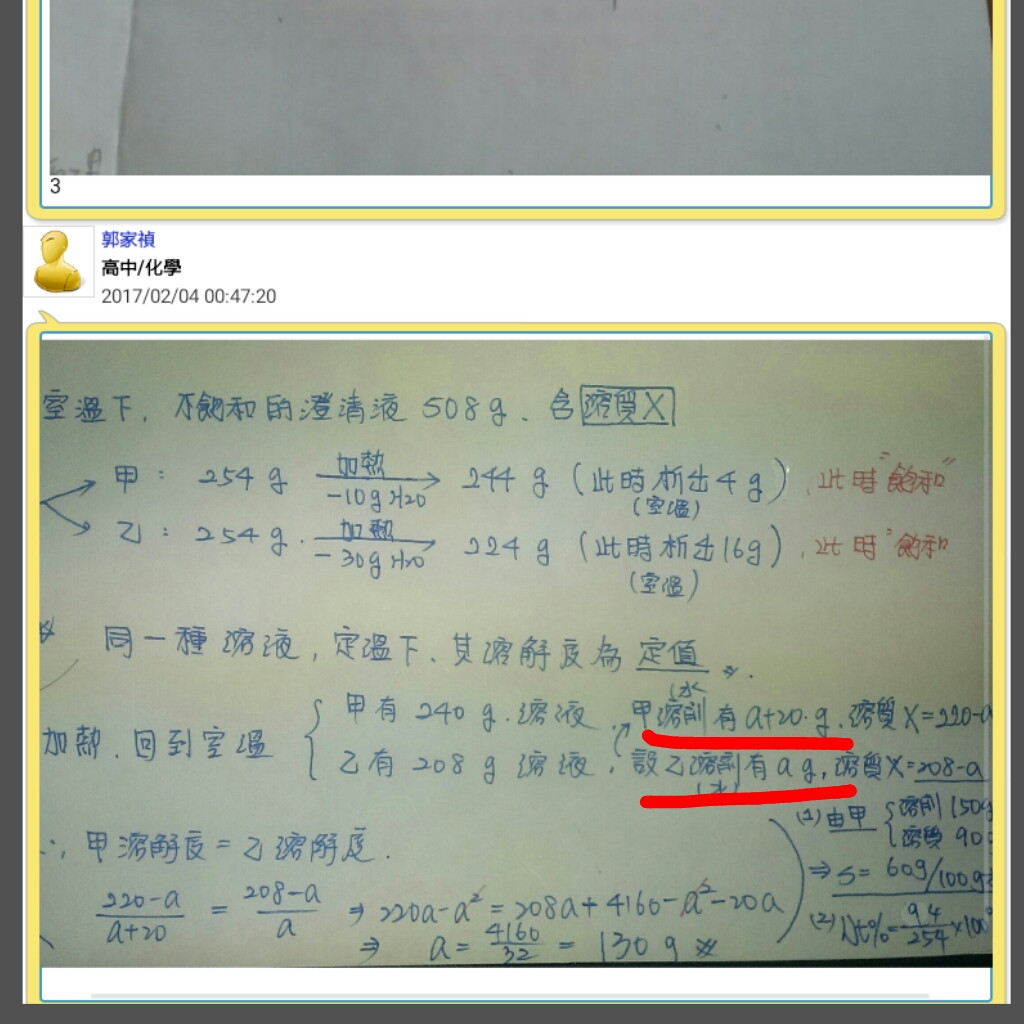 3
郭家禎
高中/化學
2017/02/04 00:47:20
室溫下, 不飽和的澄清液 508g、含 溶質X
甲: 254g 加熱 -10g H2O 244 g (此時析出4g) (室溫), 此時"飽和"
乙: 254g. 加熱 -30g H2O 224 g (此時析出16g) (室溫), 此時"飽和
同一種溶液, 定溫下、其溶解度為 定值
加熱、回到室溫
甲有 240 g. 溶液, 甲溶劑(水)有 a+20.g. 溶質X=220-a
乙有 208 g 溶液, 設乙溶劑(水)有 a g, 溶質X=208-a
∴ 甲溶解度=乙溶解度.
220-a/a+20 = 208-a/a ⇒ 220a-a²=208a+4160-a²-20a
⇒ a = 4160/32 = 130 g
(1) 由甲 溶劑 150g 溶質 90
⇒ S= 60g/100g
(2) Wt%= 94/254 ×100